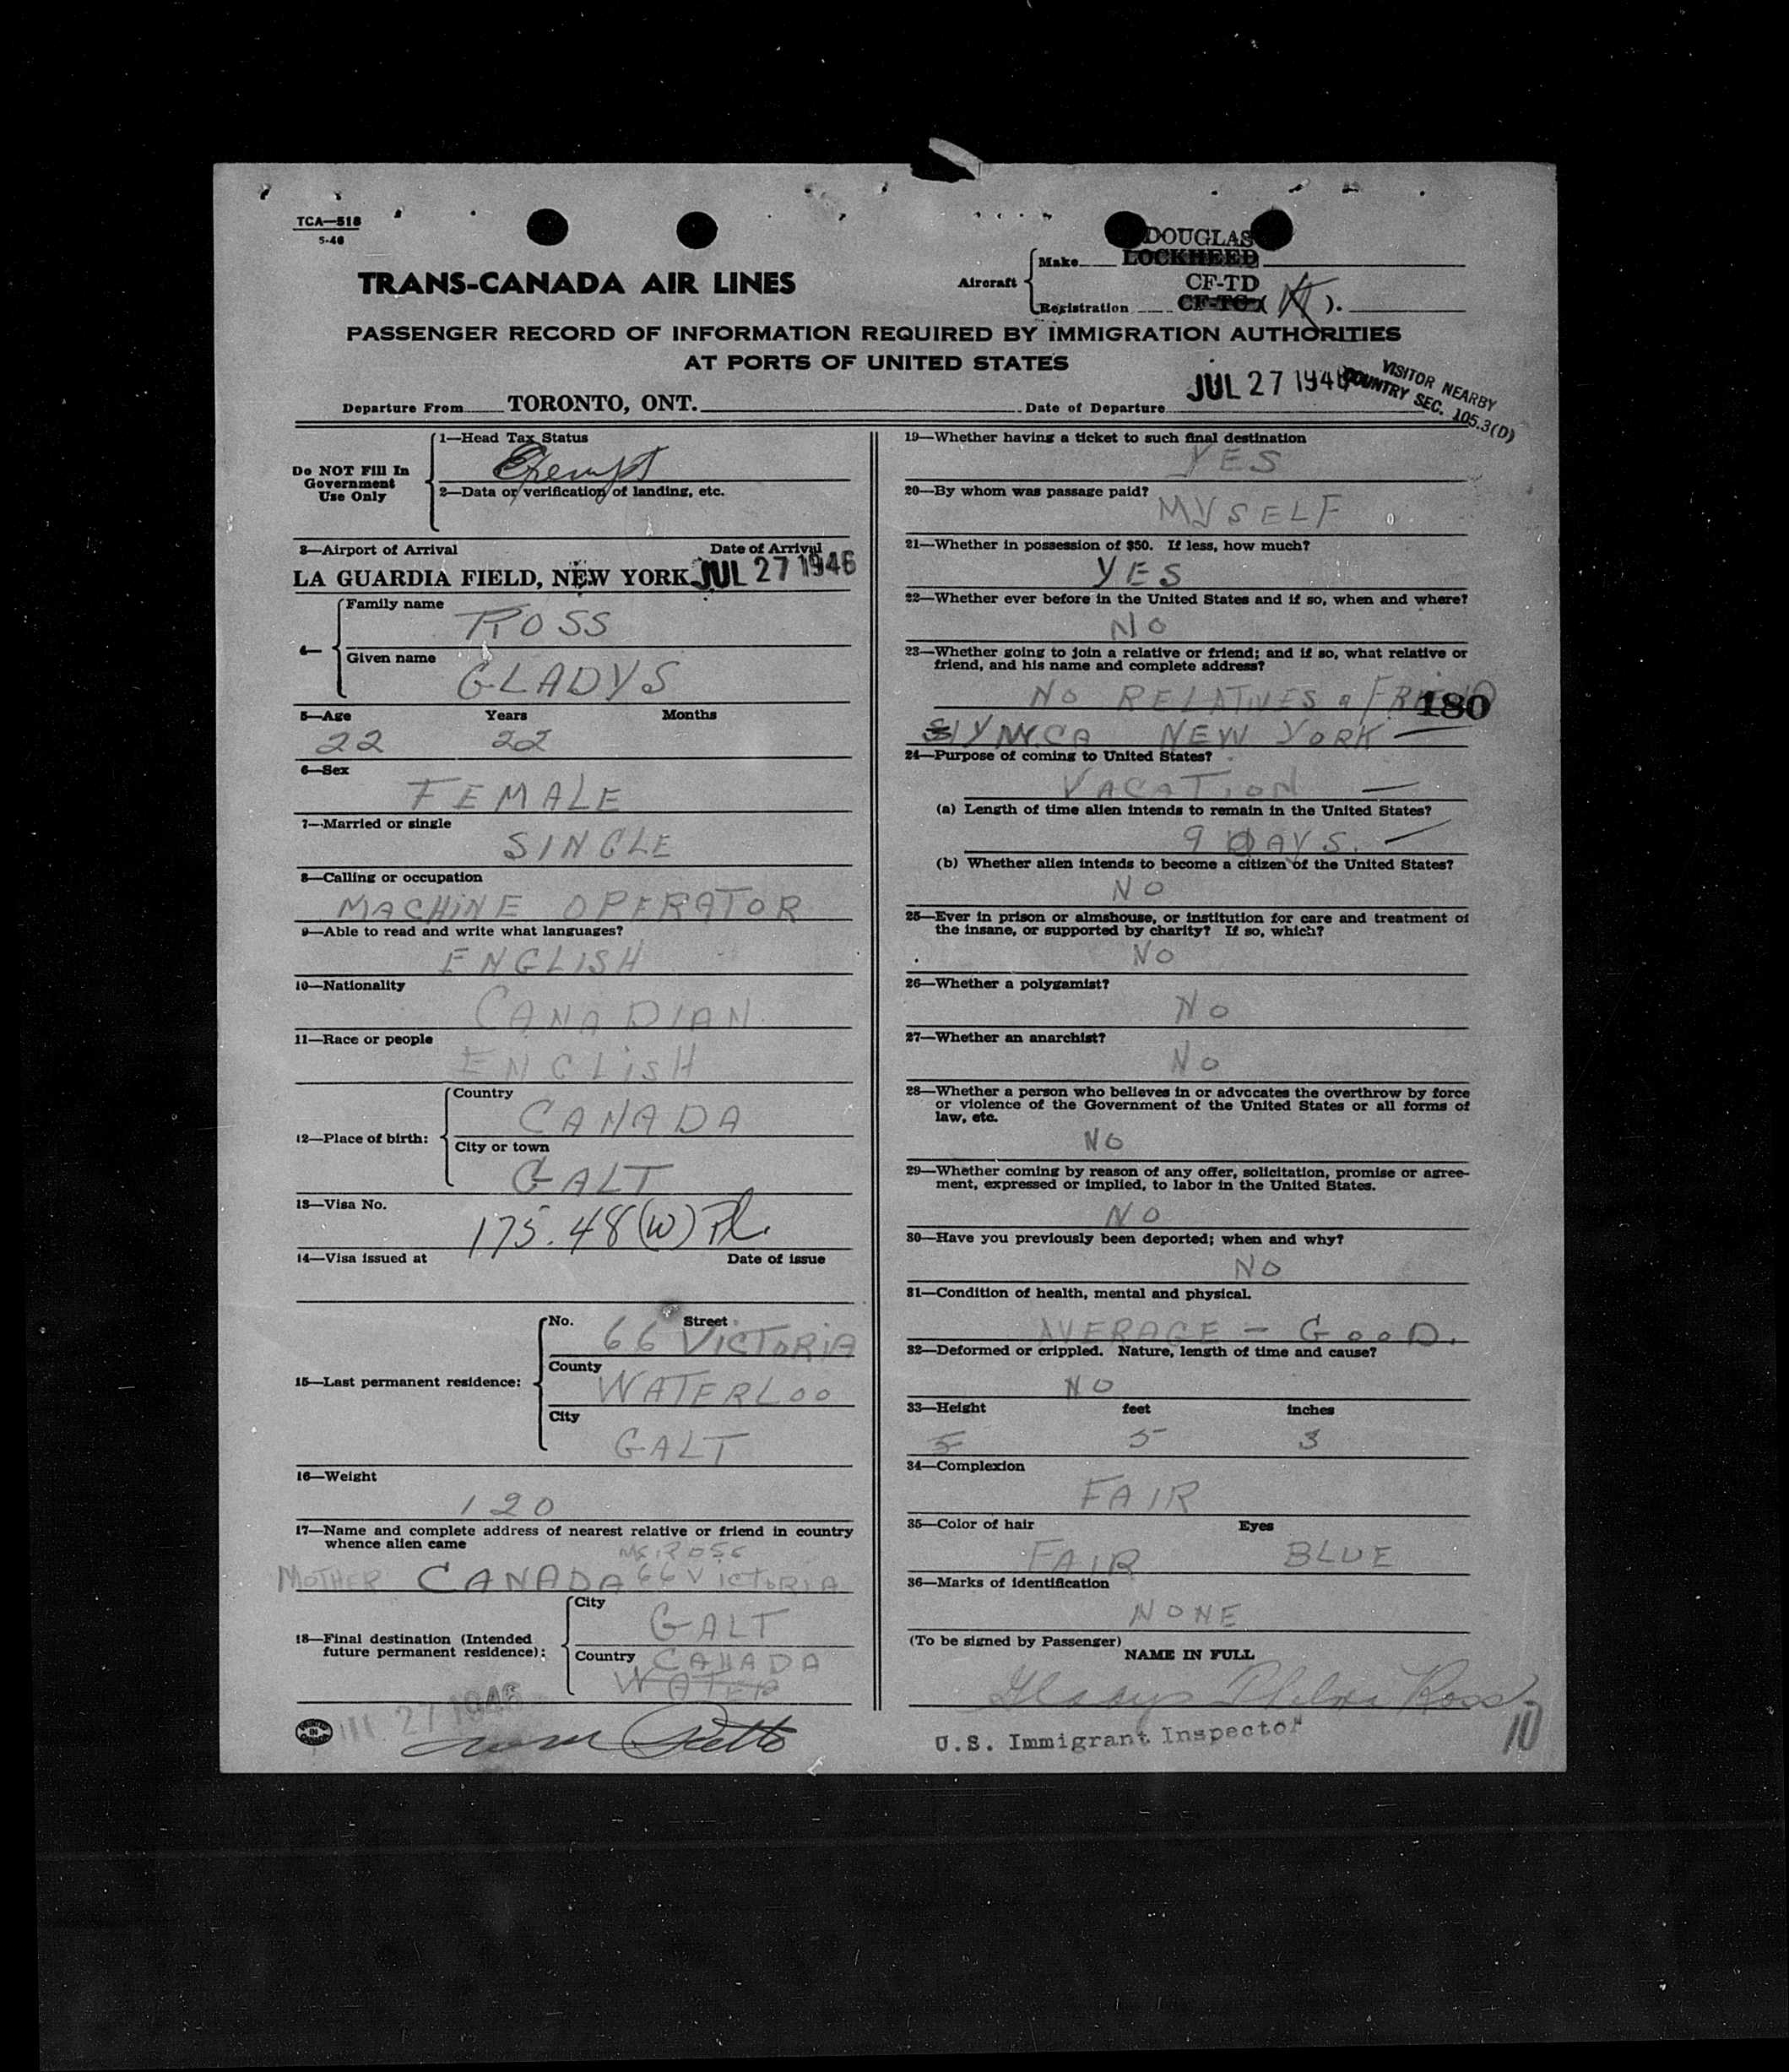 TCA—518
5-46
DOUGLAS
Make LOCKHEED
TRANS-CANADA AIR LINES
Aircraft
CF-TD
Registration CF-TC- ( ).
PASSENGER RECORD OF INFORMATION REQUIRED BY IMMIGRATION AUTHORITIES
AT PORTS OF UNITED STATES
VISITOR NEARBY
COUNTRY SEC. 105.3(D)
Departure From TORONTO, ONT. Date of Departure JUL 27 1946
Do NOT Fill In
Government
Use Only
1—Head Tax Status
Exempt
2—Data or verification of landing, etc.
3—Airport of Arrival Date of Arrival
LA GUARDIA FIELD, NEW YORK JUL 27 1946
4—
Family name
ROSS
Given name
GLADYS
5—Age Years Months
22 22
6—Sex
FEMALE
7—Married or single
SINGLE
8—Calling or occupation
MACHINE OPERATOR
9—Able to read and write what languages?
ENGLISH
10—Nationality
CANADIAN
11—Race or people
ENGLISH
12—Place of birth:
Country
CANADA
City or town
GALT
13—Visa No.
175.48(W)
14—Visa issued at Date of issue
15—Last permanent residence:
No. Street
66 VICTORIA
County
WATERLOO
City
GALT
16—Weight
120
17—Name and complete address of nearest relative or friend in country
whence alien came
ROSS
MOTHER CANADA 66 VICTORIA
18—Final destination (Intended
future permanent residence):
City
GALT
Country CANADA
WATER
JUL 27 1946
PRINTED
IN
CANADA
19—Whether having a ticket to such final destination
YES
20—By whom was passage paid?
MYSELF
21—Whether in possession of $50. If less, how much?
YES
22—Whether ever before in the United States and if so, when and where?
NO
23—Whether going to join a relative or friend; and if so, what relative or
friend, and his name and complete address?
NO RELATIVES FRIEND
180
Y.W.CA NEW YORK
24—Purpose of coming to United States?
VACATION
(a) Length of time alien intends to remain in the United States?
9 DAYS.
(b) Whether alien intends to become a citizen of the United States?
NO
25—Ever in prison or almshouse, or institution for care and treatment of
the insane, or supported by charity? If so, which?
NO
26—Whether a polygamist?
NO
27—Whether an anarchist?
NO
28—Whether a person who believes in or advocates the overthrow by force
or violence of the Government of the United States or all forms of
law, etc.
NO
29—Whether coming by reason of any offer, solicitation, promise or agree-
ment, expressed or implied, to labor in the United States.
NO
30—Have you previously been deported; when and why?
NO
31—Condition of health, mental and physical.
AVERAGE — GOOD.
32—Deformed or crippled. Nature, length of time and cause?
NO
33—Height feet inches
5 5 3
34—Complexion
FAIR
35—Color of hair Eyes
FAIR BLUE
36—Marks of identification
NONE
(To be signed by Passenger)
NAME IN FULL
Gladys Thelma Ross
U.S. Immigrant Inspector
10